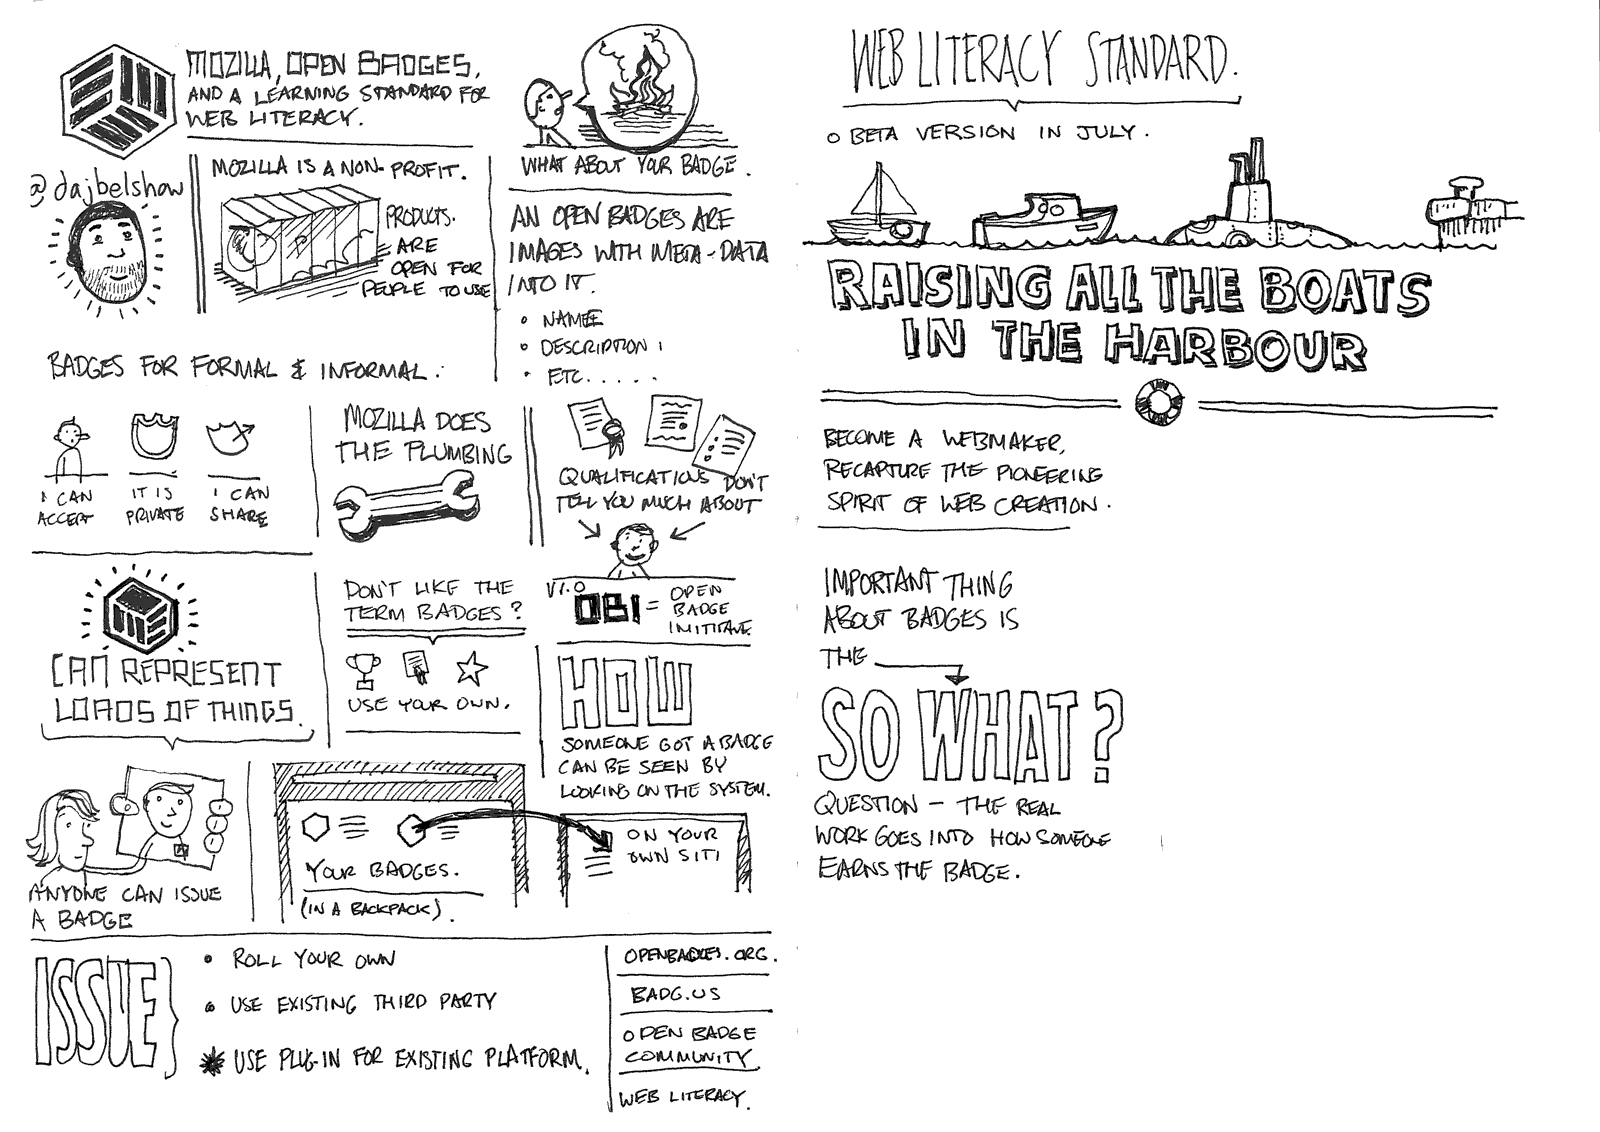 MOZILLA, OPEN BADGES,
AND A LEARNING STANDARD FOR
WEB LITERACY.
@dajbelshaw
MOZILLA IS A NON-PROFIT.
PRODUCTS.
ARE
OPEN FOR
PEOPLE TO USE
WHAT ABOUT YOUR BADGE.
AN OPEN BADGES ARE
IMAGES WITH META-DATA
INTO IT.
• NAME
• DESCRIPTION
• ETC.....
BADGES FOR FORMAL & INFORMAL.
I CAN
ACCEPT
IT IS
PRIVATE
I CAN
SHARE
MOZILLA DOES
THE PLUMBING
QUALIFICATIONS DON'T
TELL YOU MUCH ABOUT
CAN REPRESENT
LOADS OF THINGS.
DON'T LIKE THE
TERM BADGES?
USE YOUR OWN.
V1.0
OBI = OPEN
BADGE
INITITAVE.
HOW
SOMEONE GOT A BADGE
CAN BE SEEN BY
LOOKING ON THE SYSTEM.
ANYONE CAN ISSUE
A BADGE
YOUR BADGES.
(IN A BACKPACK).
ON YOUR
OWN SITI
ISSUE}
• ROLL YOUR OWN
• USE EXISTING THIRD PARTY
USE PLUG-IN FOR EXISTING PLATFORM.
OPENBADGES.ORG.
BADG.US
OPEN BADGE
COMMUNITY.
WEB LITERACY.
WEB LITERACY STANDARD.
o BETA VERSION IN JULY.
RAISING ALL THE BOATS
IN THE HARBOUR
BECOME A WEBMAKER,
RECAPTURE THE PIONEERING
SPIRIT OF WEB CREATION.
IMPORTANT THING
ABOUT BADGES IS
THE
SO WHAT?
QUESTION - THE REAL
WORK GOES INTO HOW SOMEONE
EARNS THE BADGE.